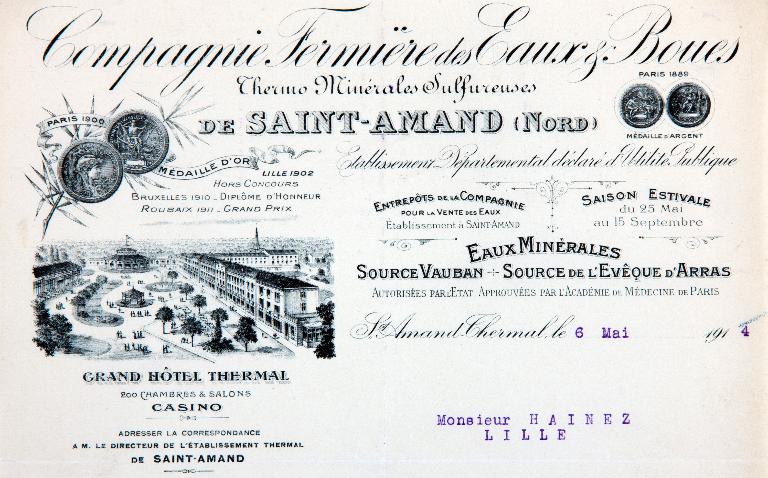 Compagnie Fermière des Eaux & Boues
Thermo Minérales Sulfureuses
DE SAINT-AMAND (NORD)
PARIS 1889
MÉDAILLE D'ARGENT
PARIS 1900
MÉDAILLE D'OR
LILLE 1902
HORS CONCOURS
BRUXELLES 1910 - DIPLÔME D'HONNEUR
ROUBAIX 1911 - GRAND PRIX
Etablissement Départemental déclaré d'Utilité Publique
ENTREPÔTS DE LA COMPAGNIE
POUR LA VENTE DES EAUX
Etablissement à SAINT-AMAND
SAISON ESTIVALE
du 25 Mai
au 15 Septembre
EAUX MINÉRALES
SOURCE VAUBAN - SOURCE DE L'EVÊQUE D'ARRAS
AUTORISÉES PAR L'ETAT APPROUVÉES PAR L'ACADÉMIE DE MÉDECINE DE PARIS
St Amand-Thermal, le 6 Mai 1914
GRAND HÔTEL THERMAL
200 CHAMBRES & SALONS
CASINO
ADRESSER LA CORRESPONDANCE
A M. LE DIRECTEUR DE L'ÉTABLISSEMENT THERMAL
DE SAINT-AMAND
Monsieur HAINEZ
LILLE